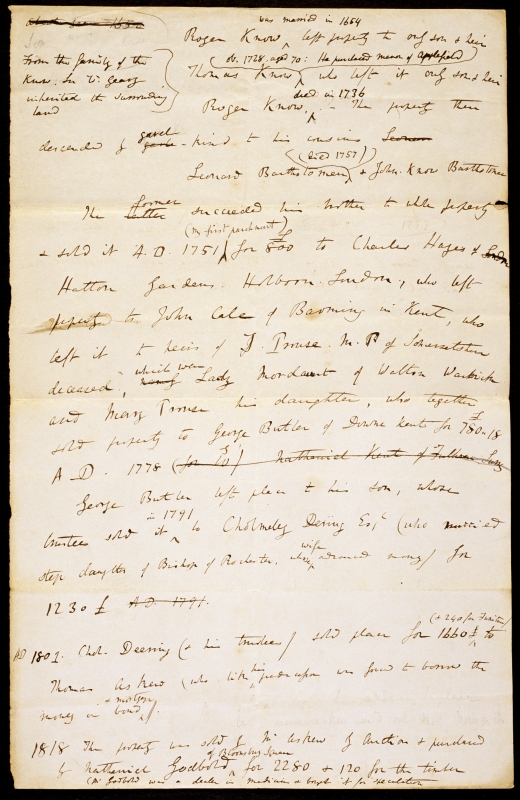 was married in 1654
Roger Know ^ left property to only son & heir
From the family of the
Know. Sir W. George
inherited the surrounding
land
(ob. 1728. aged 70: He purchased manor of
Thomas Know ^ who left it only son & heir
died in 1736
Roger Know. ^ — The property then
descended by gavel-kind to his cousins
(died 1757)
Leonard Bartholomew ^ & John Know Bartholomew
The former succeeded his brother to whole property
(my first parchment)
& sold it A.D. 1751 ^ for £800 to Charles Hayes of
Hatton Gardens. Holborn. London, who left
property to John Cale of Barming in Kent, who
left it to heirs of J. Prowse. M.P of Somersetshire
deceased, which were Lady Mordaunt of Walton Warwick
and Mary Prowse his daughter, who together
sold property to George Butler of Downe Kent for £780..18
A D. 1778 (for £ ) Nathaniel Kent of Fulham
George Butler left place to his son, whose
in 1791
trustees sold it ^ to Cholmeley Dering Esqr (who married
step daughter of Bishop of Rochester, whose wife advanced money) for
1230 £ A.D. 1791.
(& 240 for Furniture)
AD 180 . Chol. Deering (& his trustees) sold place for 1660 £ ^ to
Thomas Askew (who like his predecessor was forced to borrow the
money on bond & mortgage).
1818 The property was sold by Mr Askew by Auction & purchased
of Bloomsbury Square
by Nathaniel Godbold ^ for 2280 & 120 for the timber
(Mr Godbold was a dealer in medicine & bought it for speculation